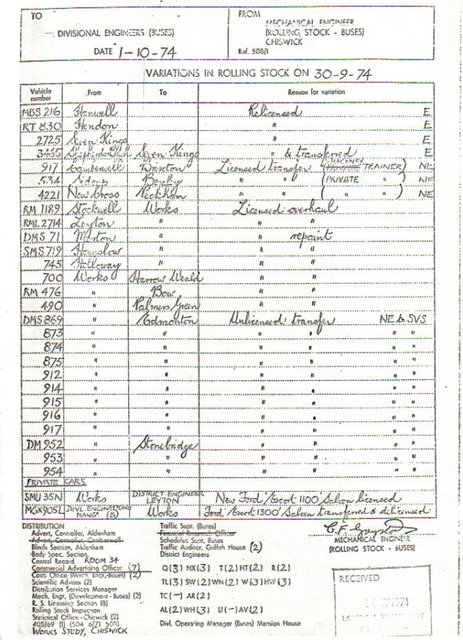 TO
— DIVISIONAL ENGINEERS (BUSES)
DATE 1-10-74
FROM
MECHANICAL ENGINEER
(ROLLING STOCK - BUSES)
CHISWICK
Ref. 508/1
VARIATIONS IN ROLLING STOCK ON 30-9-74
Vehicle number From To Reason for variation
MBS 216 Hanwell Relicensed E
RT 830 Hendon " E
2725 Seven Kings " E
3465 Seven Kings " & transferred E
917 Camberwell Licensed transfer ( TRAINER) NE
534 " " (PRIVATE " ) NE
4221 New Cross Peckham " " ( " " ) NE
RM 1189 Stockwell Works Licensed overhaul
RML 2714 Leyton " " "
DMS 71 Merton " " repaint
SMS 719 Hounslow " " "
745 Holloway " " "
700 Works Harrow Weald " "
RM 476 " Bow " "
490 " Palmers Green " "
DMS 869 " Edmonton Unlicensed transfer NE to SVS
873 " " " " " "
874 " " " " " "
875 " " " " " "
912 " " " " " "
914 " " " " " "
915 " " " " " "
916 " " " " " "
917 " " " " " "
DM 952 " Stonebridge " " " "
953 " " " " " "
954 " " " " " "
PRIVATE CARS
SMU 35N Works DISTRICT ENGINEER LEYTON New Ford Escort 1100 Saloon licensed
MGX905L DIVL ENGINEERING Works Ford Escort 1300 Saloon transferred & delicensed
MECHANICAL ENGINEER
(ROLLING STOCK - BUSES)
DISTRIBUTION
Advert. Controller, Aldenham
Blinds Section, Aldenham
Body Spec. Section
Central Record ROOM 34
Commercial Advertising Officer (7)
Costs Office (Mech. Engr. Buses) (2)
Scientific Adviser (2)
Distribution Services Manager
Mech. Engr. (Development - Buses) (2)
R. S. Licensing Section (8)
Rolling Stock Inspection
Statistical Office - Chiswick (2)
WORKS STUDY, CHISWICK
Traffic Supt. (Buses)
Schedules Supt. Buses
Traffic Auditor, Griffith House (2)
District Engineers
Q(3) NX(3) T(2) HT(2) R(2)
TL(3) SW(2) WN(2) W(3) HW(3)
TC(—) AR(2)
AL(2) WH(3) U(—) AV(2)
Divl. Operating Manager (Buses) Mansion House
RECEIVED